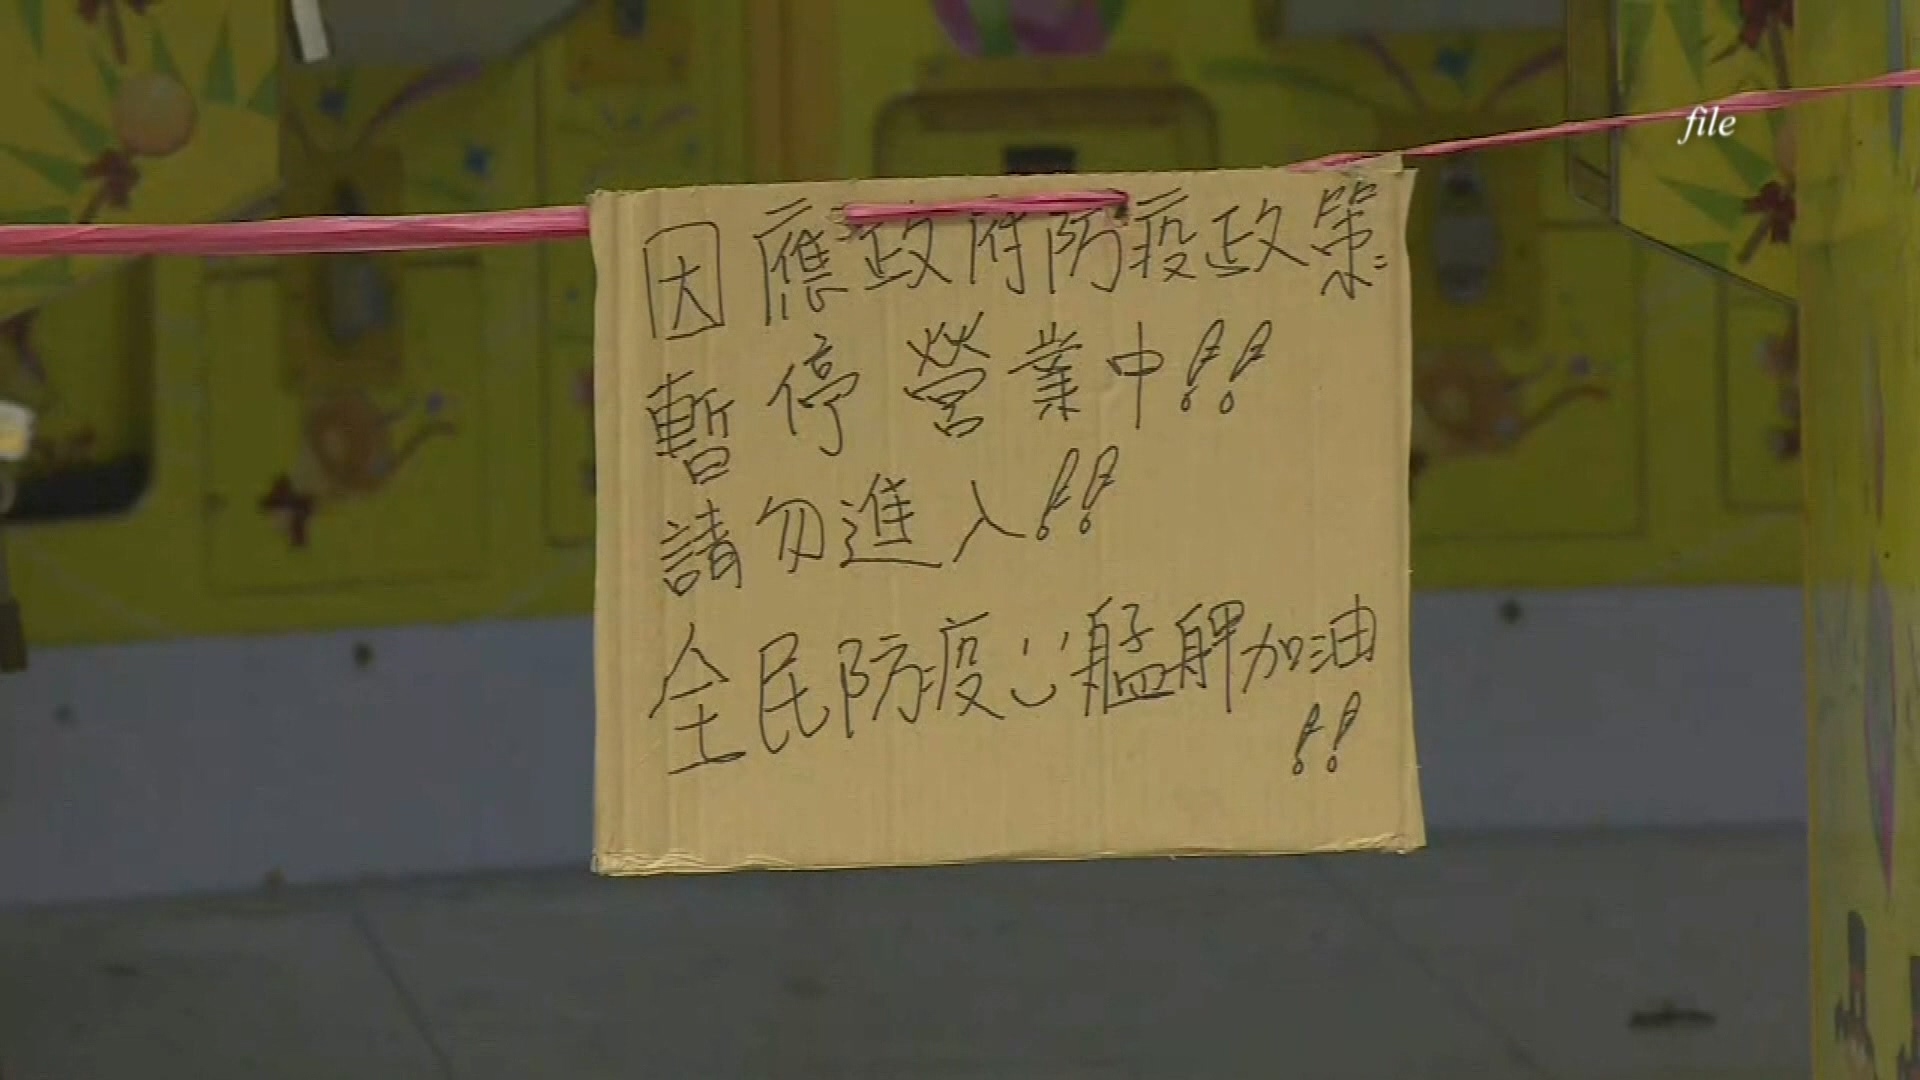 file
因應政府防疫政策
暫停營業中!!
請勿進入!!
全民防疫心艋舺加油
!!